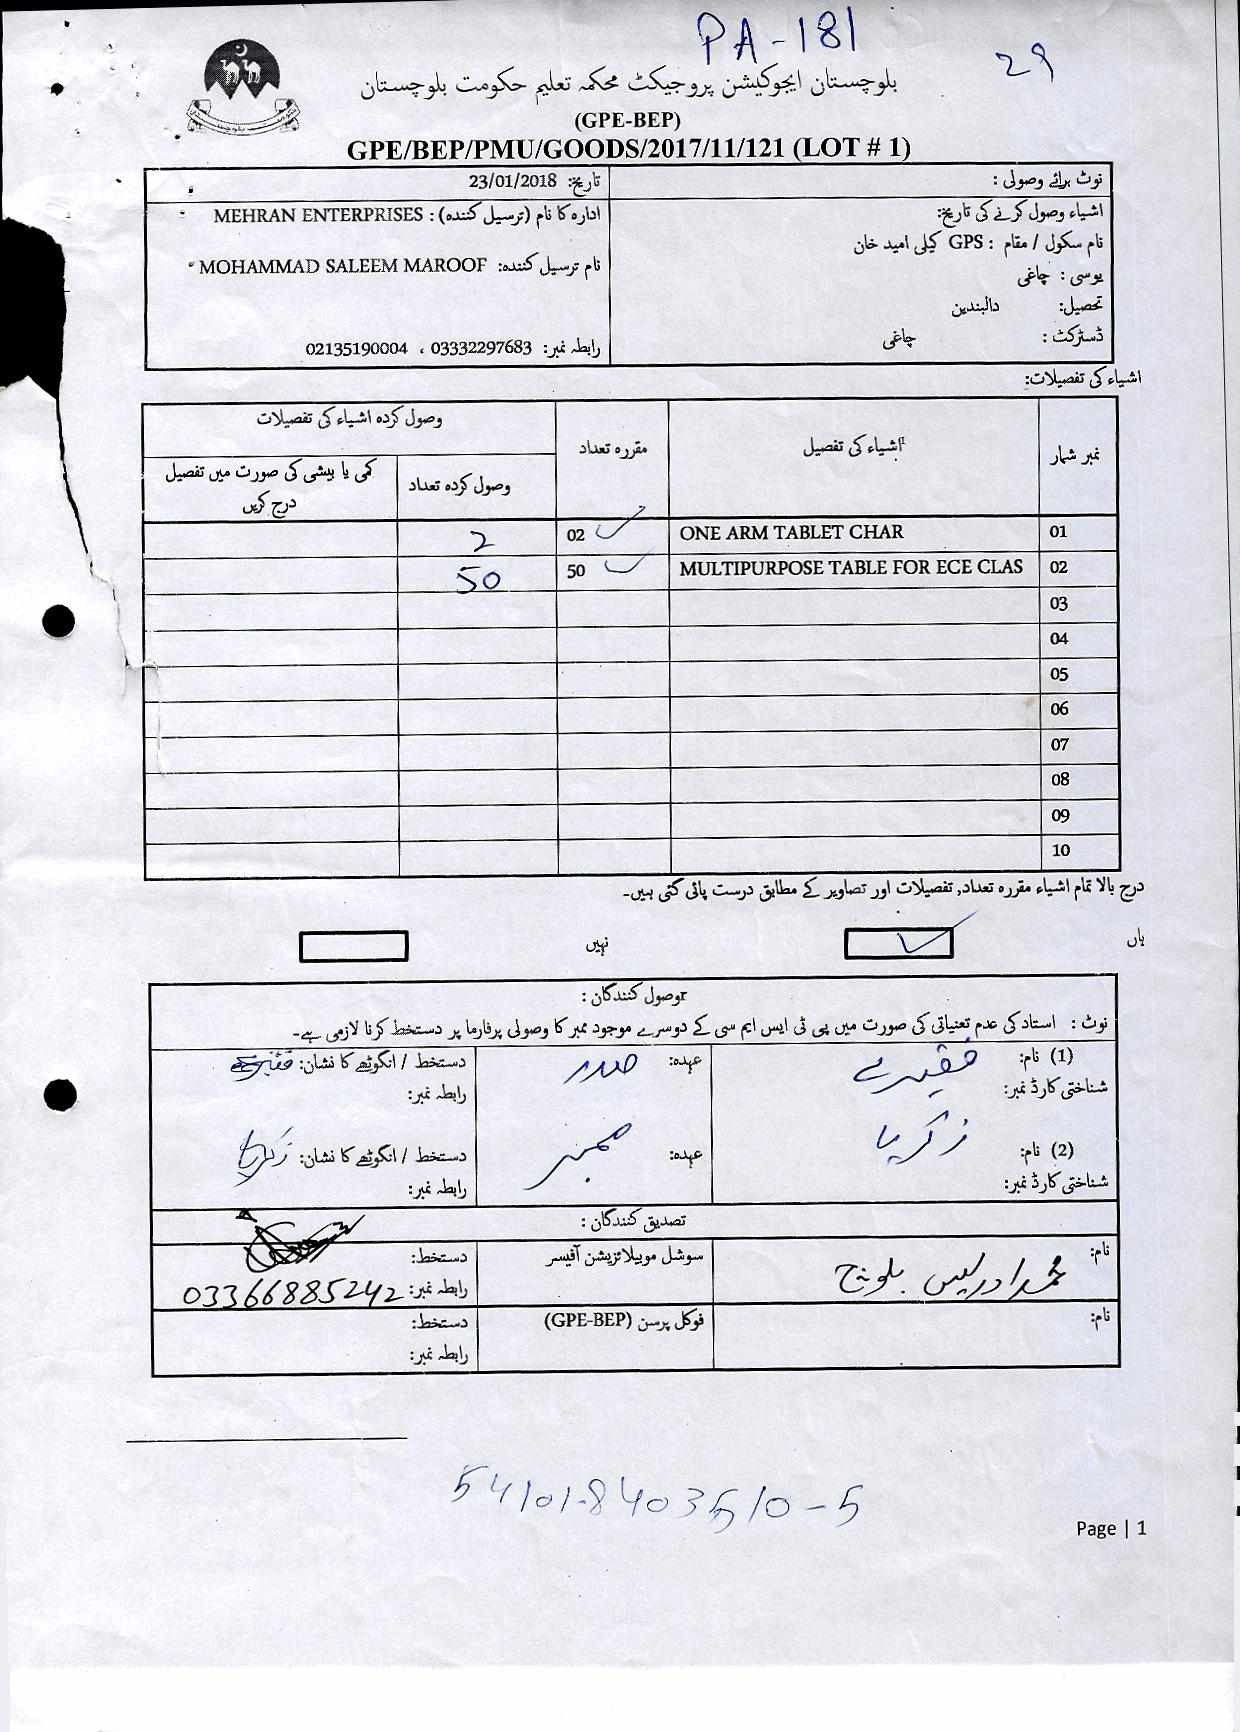 PA-181
29
بلوچستان ایجوکیشن پروجیکٹ محکمہ تعلیم حکومت بلوچستان
(GPE-BEP)
GPE/BEP/PMU/GOODS/2017/11/121 (LOT # 1)
نوٹ برائے وصولی : تاریخ: 23/01/2018
اشیاء وصول کرنے کی تاریخ: ادارہ کا نام (ترسیل کنندہ) : MEHRAN ENTERPRISES
نام سکول / مقام : GPS کیلی امید خان
نام ترسیل کنندہ: MOHAMMAD SALEEM MAROOF
یوسی : چاغی
تحصیل: دالبندین
ڈسٹرکٹ : چاغی
رابطہ نمبر: 03332297683 ، 02135190004
اشیاء کی تفصیلات:
نمبر شمار اشیاء کی تفصیل مقررہ تعداد وصول کردہ اشیاء کی تفصیلات
وصول کردہ تعداد کمی یا بیشی کی صورت میں تفصیل
درج کریں
01 ONE ARM TABLET CHAR 02 2
02 MULTIPURPOSE TABLE FOR ECE CLAS 50 50
03
04
05
06
07
08
09
10
درج بالا تمام اشیاء مقررہ تعداد, تفصیلات اور تصاویر کے مطابق درست پائی گئی ہیں۔
ہاں نہیں
وصول کنندگان :
نوٹ : استاد کی عدم تعنیاتی کی صورت میں پی ٹی ایس ایم سی کے دوسرے موجود ممبر کا وصولی پرفارما پر دستخط کرنا لازمی ہے۔
(1) نام: فقیرے عہدہ: صدر دستخط / انگوٹھے کا نشان:
شناختی کارڈ نمبر: رابطہ نمبر:
(2) نام: زکریا عہدہ: ممبر دستخط / انگوٹھے کا نشان: زکریا
شناختی کارڈ نمبر: رابطہ نمبر:
تصدیق کنندگان :
نام: محمد ادریس بلوچ سوشل موبیلائزیشن آفیسر دستخط:
رابطہ نمبر: 03366885242
نام: فوکل پرسن (GPE-BEP) دستخط:
رابطہ نمبر:
54101-8403510-5
Page | 1